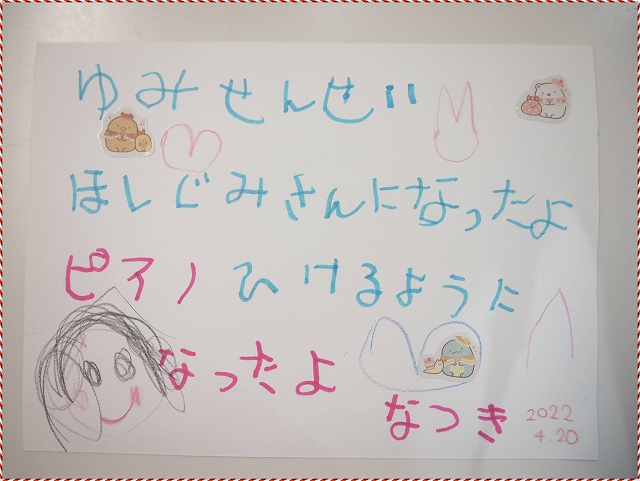 ゆみせんせい
ほしぐみさんになったよ
ピアノひけるように
なったよ
なつき
2022
4.20